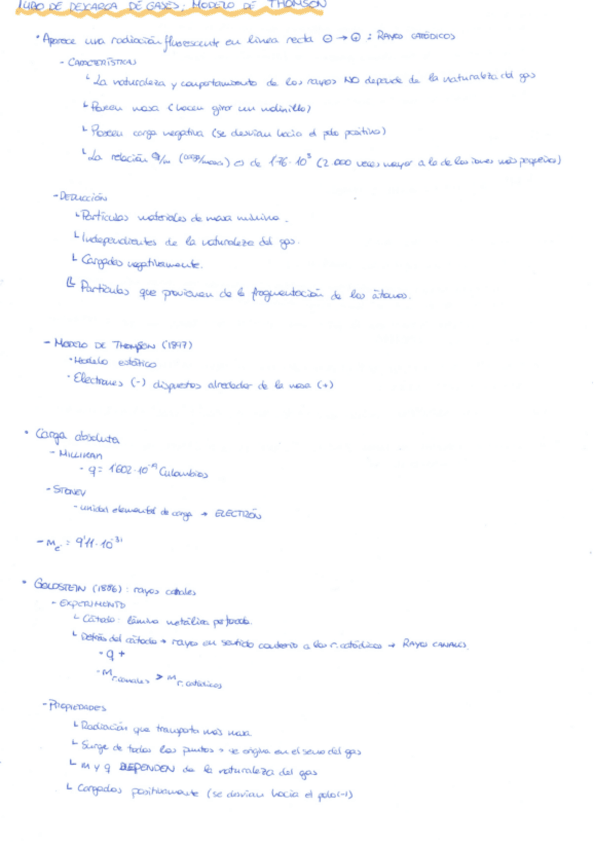 TUBO DE DESCARGA DE GASES: MODELO DE THOMSON
· Aparece una radiación fluorescente en línea recta ⊖ → ⊕ : RAYOS CATÓDICOS
- CARACTERÍSTICAS
↳ La naturaleza y comportamiento de los rayos NO depende de la naturaleza del gas
↳ Poseen masa (hacen girar un molinillo)
↳ Poseen carga negativa (se desvían hacia el polo positivo)
↳ La relación q/m (carga/masa) es de 1'76·10⁸ (2.000 veces mayor a la de los iones más pequeños)
- DEDUCCIÓN
↳ Partículas materiales de masa mínima.
↳ Independientes de la naturaleza del gas.
↳ Cargadas negativamente.
↳ Partículas que provienen de la fragmentación de los átomos.
- MODELO DE THOMSON (1897)
· Modelo estático
· Electrones (-) dispuestos alrededor de la masa (+)
· Carga absoluta
- MILLIKAN
- q = 1'602·10⁻¹⁹ Culombios
- STONEY
- unidad elemental de carga → ELECTRÓN
- mₑ = 9'11·10⁻³¹
· GOLDSTEIN (1886) : rayos canales
- EXPERIMENTO
↳ Cátodo: lámina metálica perforada.
↳ Detrás del cátodo → rayos en sentido contrario a los r. catódicos → RAYOS CANALES.
· q +
· m r.canales > m r.catódicos
- PROPIEDADES
↳ Radiación que transporta más masa.
↳ Surge de todos los puntos → se origina en el seno del gas
↳ m y q DEPENDEN de la naturaleza del gas
↳ Cargados positivamente (se desvían hacia el polo (-))